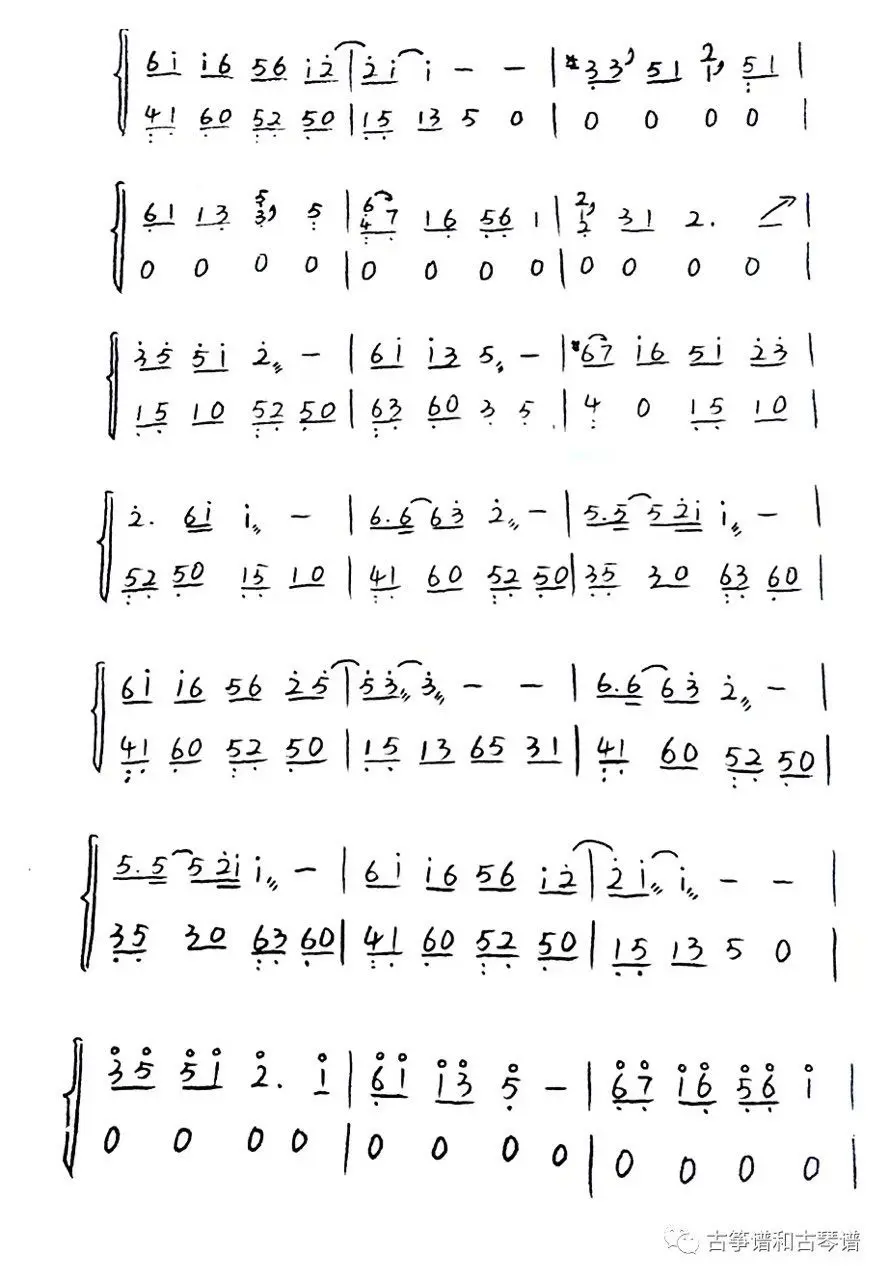 6i i6 56 i2̇ | 2̇i i - - | 33 51 2 1 51 |
41 60 52 50 | 15 13 5 0 | 0 0 0 0 |
61 13 5 3 5 | 6 4 7 16 56 1 | 2 1 2 31 2. |
0 0 0 0 | 0 0 0 0 | 0 0 0 0 |
3̇5̇ 5̇i 2̇ - | 6i i3 5 - | 67 i6 5i 2̇3̇ |
15 10 52 50 | 63 60 3 5 | 4 0 15 10 |
2̇. 6i i - | 6.6 63̇ 2̇ - | 5.5 52̇i i - |
52 50 15 10 | 41 60 52 50 | 35 30 63 60 |
6i i6 56 2̇5̇ | 5̇3̇ 3̇ - - | 6.6 63̇ 2̇ - |
41 60 52 50 | 15 13 65 31 | 41 60 52 50 |
5.5 52̇i i - | 6i i6 56 i2̇ | 2̇i i - - |
35 30 63 60 | 41 60 52 50 | 15 13 5 0 |
35 51 2. 1 | 61 13 5 - | 67 16 56 1 |
0 0 0 0 | 0 0 0 0 | 0 0 0 0 |
古筝谱和古琴谱